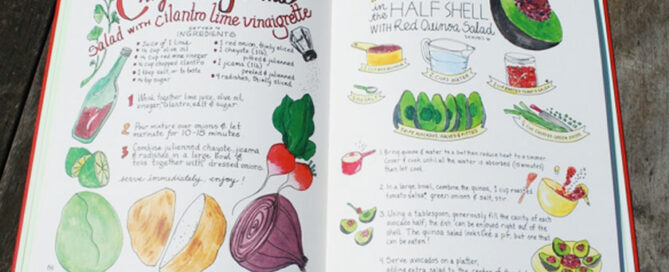 Salad WITH Cilantro lime vinaigrette
INGREDIENTS
• Juice of 1 lime
• ¼ cup olive oil
• ¼ cup red wine vinegar
• ¼ cup chopped cilantro
• 1 tbsp salt, or to taste
• ½ tsp sugar
• 1 red onion, thinly sliced
• 1 chayote (5lb)
peeled & julienned
• 1 jicama (5lb)
peeled & julienned
• 4 radishes, thinly sliced
1 Whisk together lime juice, olive oil,
vinegar, cilantro, salt & sugar.
2 Pour mixture over onions & let
marinate for 10-15 minutes.
3 Combine julienned chayote, jicama
& radishes in a large bowl &
toss together with dressed onions.
serve immediately, enjoy!
in the HALF SHELL
WITH Red Quinoa Salad
SERVES
2 CUPS WATER
1. Bring quinoa & water to a boil then reduce heat to a simmer.
Cover & cook until all the water is absorbed (15 minutes)
then let cool.
2. In a large bowl, combine the quinoa, 1 cup roasted
tomato salsa, green onions & salt, stir.
3. Using a tablespoon, generously fill the cavity of each
avocado half; the dish can be enjoyed right out of the
shell. The quinoa salad looks like a pit, but one that
can be eaten!
4. Serve avocados on a platter,
adding extra salad to the center